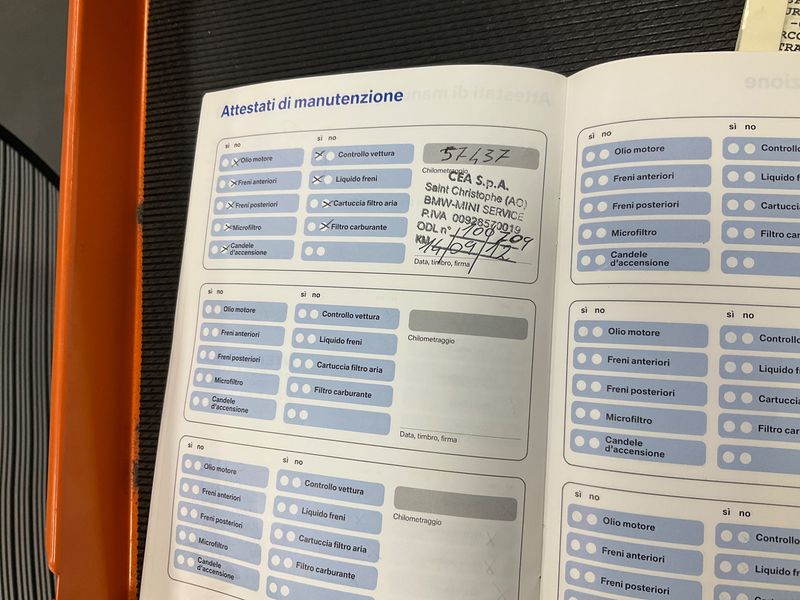 Attestati di manutenzione
sì no
sì no
Olio motore
Controllo vettura
57437
Freni anteriori
Liquido freni
Chilometraggio
Freni posteriori
Cartuccia filtro aria
Microfiltro
Filtro carburante
Candele
d'accensione
CEA S.p.A.
Saint Christophe (AO)
BMW-MINI SERVICE
P.IVA 00928570019
ODL n°
KM
14/09/12
Data, timbro, firma
sì no
sì no
Olio motore
Controllo vettura
Freni anteriori
Liquido freni
Chilometraggio
Freni posteriori
Cartuccia filtro aria
Microfiltro
Filtro carburante
Candele
d'accensione
Data, timbro, firma
sì no
sì no
Olio motore
Controllo vettura
Freni anteriori
Liquido freni
Chilometraggio
Freni posteriori
Cartuccia filtro aria
Microfiltro
Filtro carburante
Candele
d'accensione
sì no
sì no
Olio motore
Controllo
Freni anteriori
Liquido f
Freni posteriori
Cartuccia
Microfiltro
Filtro car
Candele
d'accensione
sì no
sì no
Olio motore
Controllo
Freni anteriori
Liquido f
Freni posteriori
Cartuccia
Microfiltro
Filtro car
Candele
d'accensione
sì no
sì no
Olio motore
Controllo
Freni anteriori
Liquido f
Freni posteriori